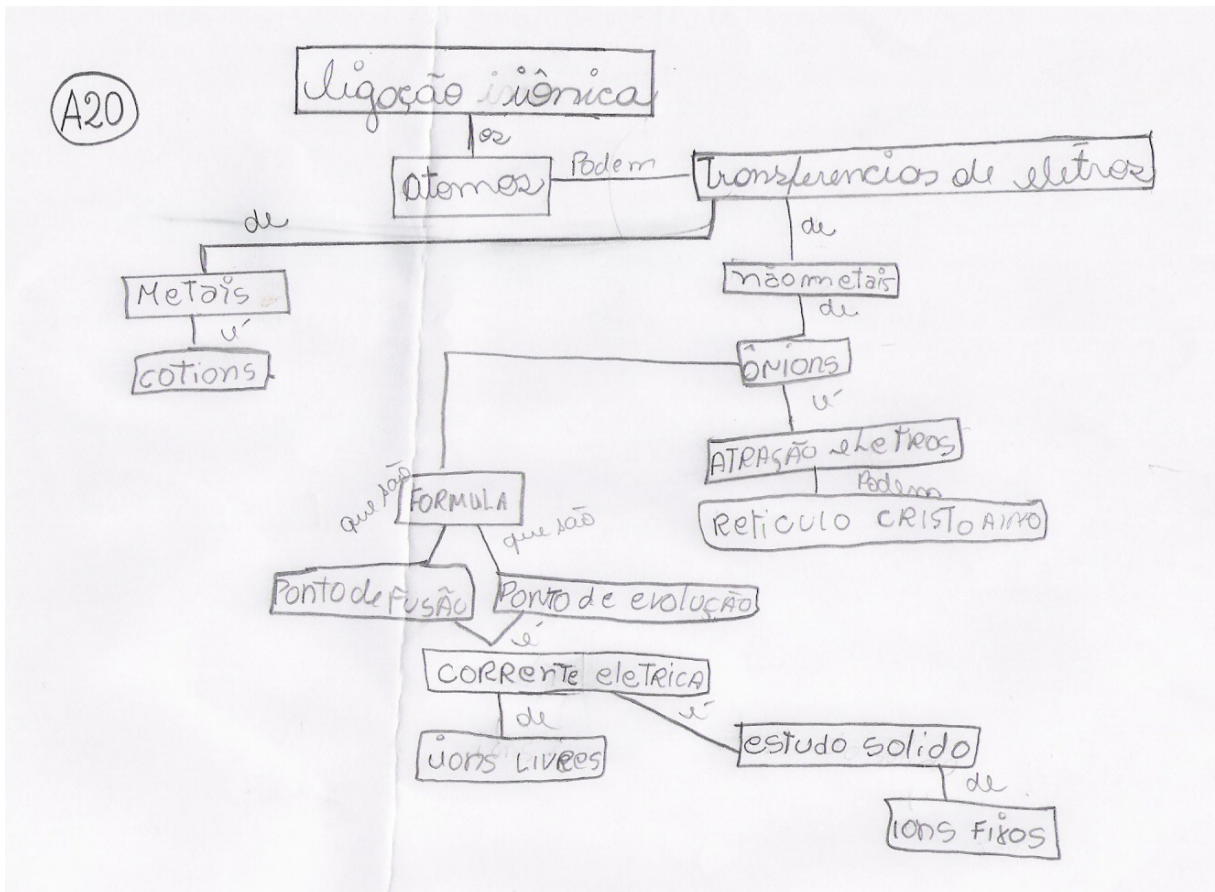 A20
ligação iônica
os
atomos
Podem
Transferencias de eletros
de
de
Metais
não metais
é
de
cotions
ÔNIONS
é
ATRAÇÃO eLeTROS
Podem
ReTiCULO CRISTOAINO
que são
FORMULA
que são
Ponto de FUSÃO
PONTO de evolUÇÃO
é
CORRenTe eleTRiCA
de
é
íons LIVRes
esTudo soLido
de
ions FiXos